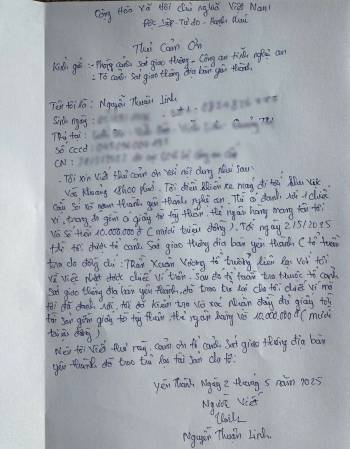 Cộng Hòa Xã Hội Chủ Nghĩa Việt Nam
Độc lập - Tự do - Hạnh Phúc
Thư Cảm Ơn
Kính gửi : - Phòng cảnh sát giao thông - Công an tỉnh nghệ an
- Tổ cảnh sát giao thông địa bàn yên thành
Tên tôi là : Nguyễn Thuần Linh
Sinh ngày : SĐT :
Thị tại :
Số cccd
CN :
- Tôi xin viết thư cảm ơn với nội dung như sau :
Vào khoảng 18h00 phút. Tôi điều khiển xe máy đi tới khu vực
cầu xã nam thành yên thành nghệ an. Thì có đánh rơi 1 chiếc
ví, trong đó gồm có giấy tờ tùy thân, thẻ ngân hàng mang tên tôi
Và số tiền 10.000.000đ ( mười triệu đồng ). Tới ngày 2/5/2025
thì tôi được tổ cảnh sát giao thông địa bàn yên thành ( tổ tuần
tra do đồng chí : Trần Xuân Vương tổ trưởng liên lạc với tôi
về việc nhặt được chiếc ví trên. Sau đó tổ tuần tra thuộc tổ cảnh
sát giao thông địa bàn yên thành, đã trao trả lại cho tôi chiếc ví mà
tôi đã đánh rơi, tôi đã kiểm tra và xác nhận đầy đủ giấy tờ, tài
sản gồm giấy tờ tùy thân, thẻ ngân hàng và 10.000.000đ ( mười
triệu đồng )
Nên tôi viết thư này cảm ơn tổ cảnh sát giao thông địa bàn
yên thành đã trao trả lại tài sản cho tôi.
Yên Thành Ngày 2 tháng 5 năm 2025
Người Viết
Nguyễn Thuần Linh.